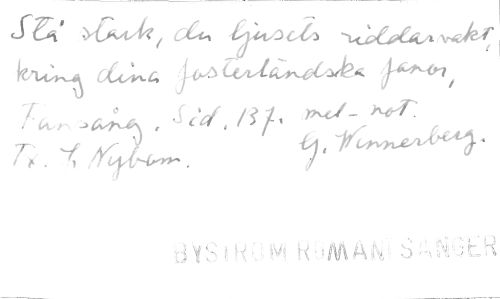 Stå stark, du ljusets riddarvakt,
kring dina fosterländska fanor,
Fansång. Sid. 137. mel-not.
Tx. L Nybom. G. Wennerberg.
BYSTRÖM ROMAN: SÅNGER